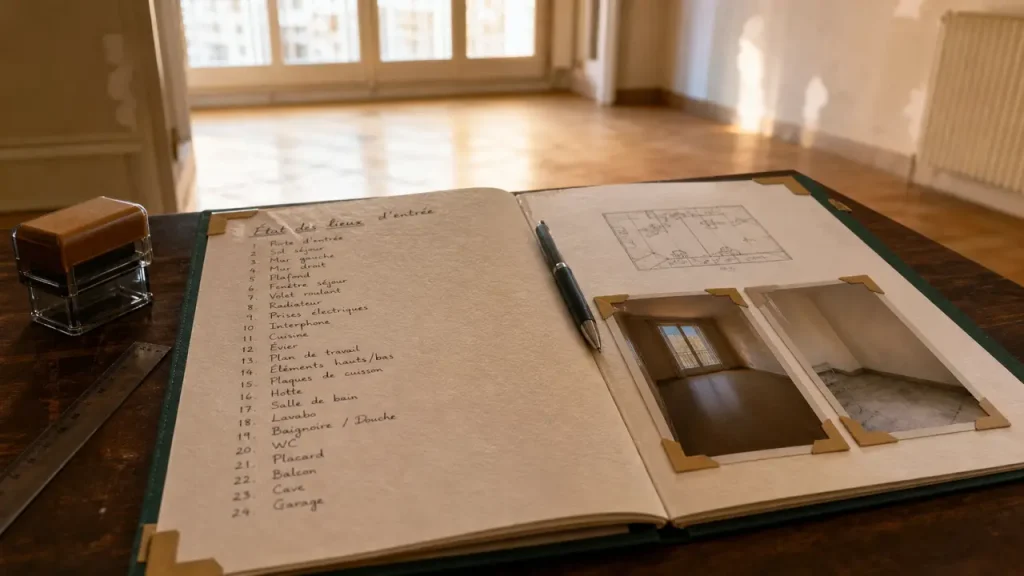 État des lieux d'entrée
1 Porte d'entrée
2 Sol séjour
3 Mur gauche
4 Mur droit
5 Plafond
6 Fenêtre séjour
7 Volet roulant
8 Radiateur
9 Prises électriques
10 Interphone
11 Cuisine
12 Évier
13. Plan de travail
14 Éléments hauts/bas
15. Plaques de cuisson
16. Hotte
17. Salle de bain
18. Lavabo
19. Baignoire / Douche
20. WC
21. Placard
22. Balcon
23 Cave
24 Garage